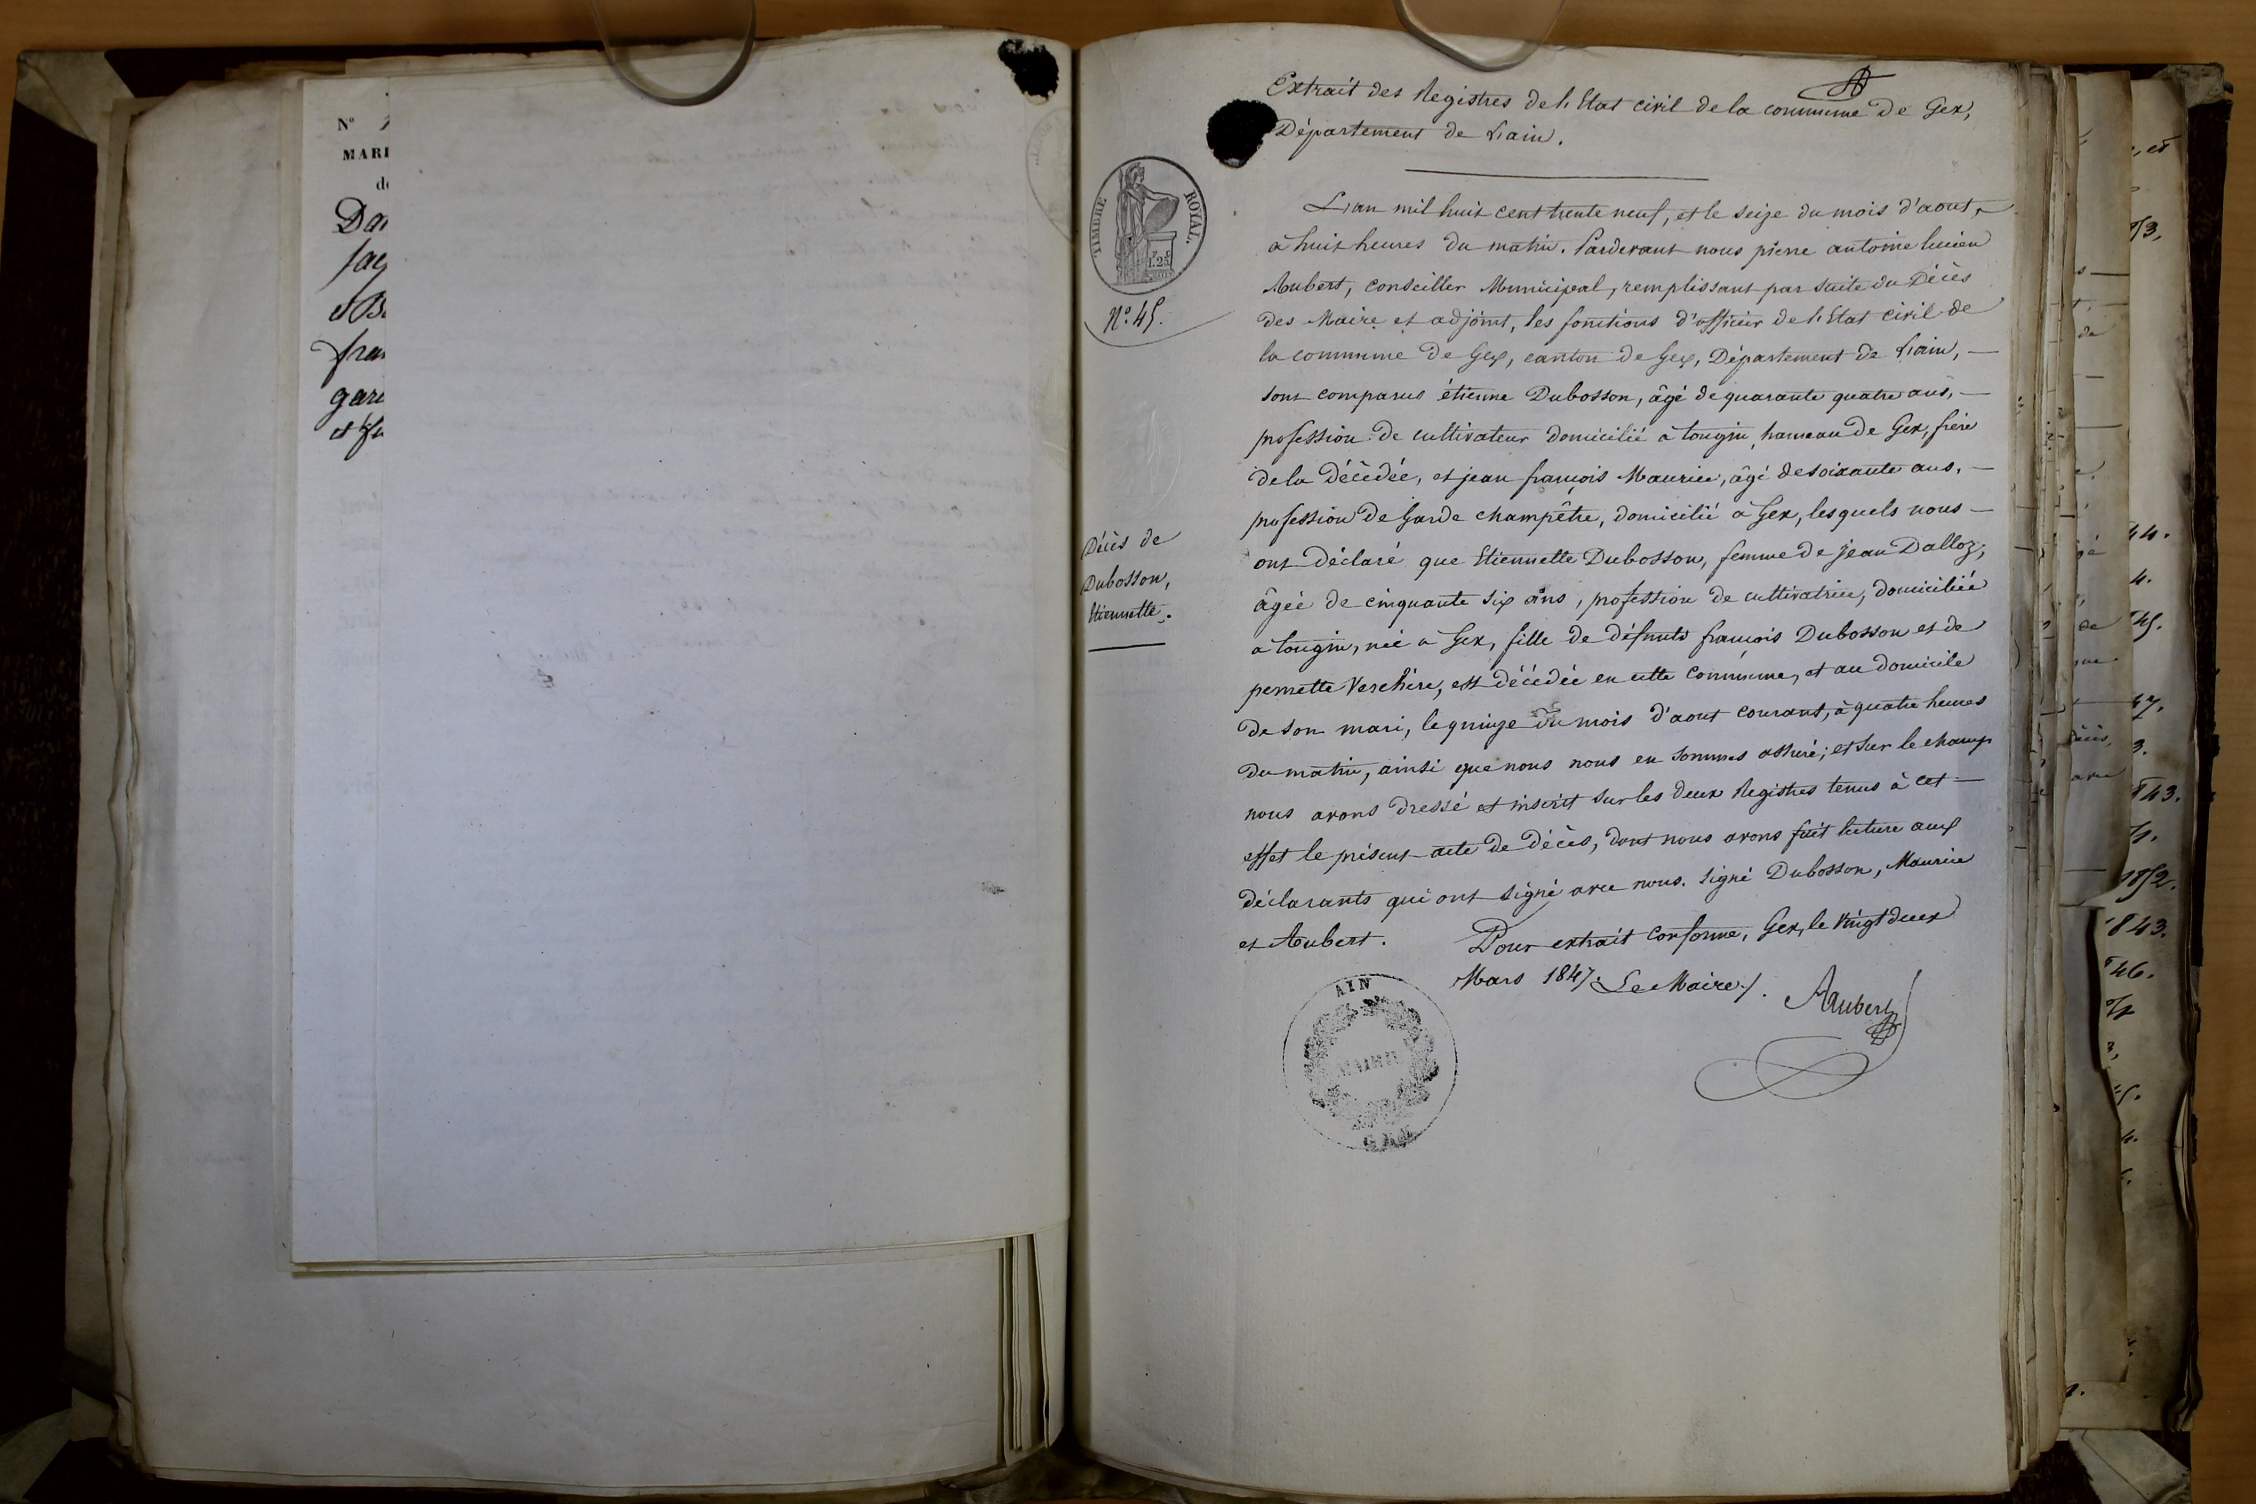 N°
MARI
de
Dal
Jac
et B
fran
gar
et
Extrait des Registres de l'Etat civil de la commune de Gex,
Département de L'ain.
TIMBRE ROYAL.
1.25
N°. 45.
L'an mil huit cent trente neuf, et le seize du mois d'aout,
à huit heures du matin. Pardevant nous pierre antoine lucien
Aubert, conseiller Municipal, remplissant par suite du Décès
des Maire et adjoint, les fonctions d'officier de l'Etat civil de
la commune de Gex, canton de Gex, Département de L'ain,
sont comparus étienne Dubosson, âgé de quarante quatre ans,
profession de cultivateur domicilié à tougin, hameau de Gex, frère
de la Décédée, et jean françois Maurice, âgé de soixante ans,
profession de Garde champêtre, domicilié à Gex, lesquels nous
ont déclaré que Etiennette Dubosson, femme de jean Dalloz,
âgée de cinquante six ans, profession de cultivatrice, domiciliée
à tougin, née à Gex, fille de défunts françois Dubosson et de
pernette Verchère, est décédée en cette commune, et au domicile
de son mari, le quinze du mois d'aout courant, à quatre heures
du matin, ainsi que nous nous en sommes assuré; et sur le champ
nous avons dressé et inscrit sur les deux Registres tenus à cet
effet le présent acte de décès, dont nous avons fait lecture aux
déclarants qui ont signé avec nous. Signé Dubosson, Maurice
et Aubert.
Décès de
Dubosson,
Etiennette.
Pour extrait conforme, Gex, le vingt deux
Mars 1847. Le Maire.
Aubert
AIN
MAIRIE
GEX